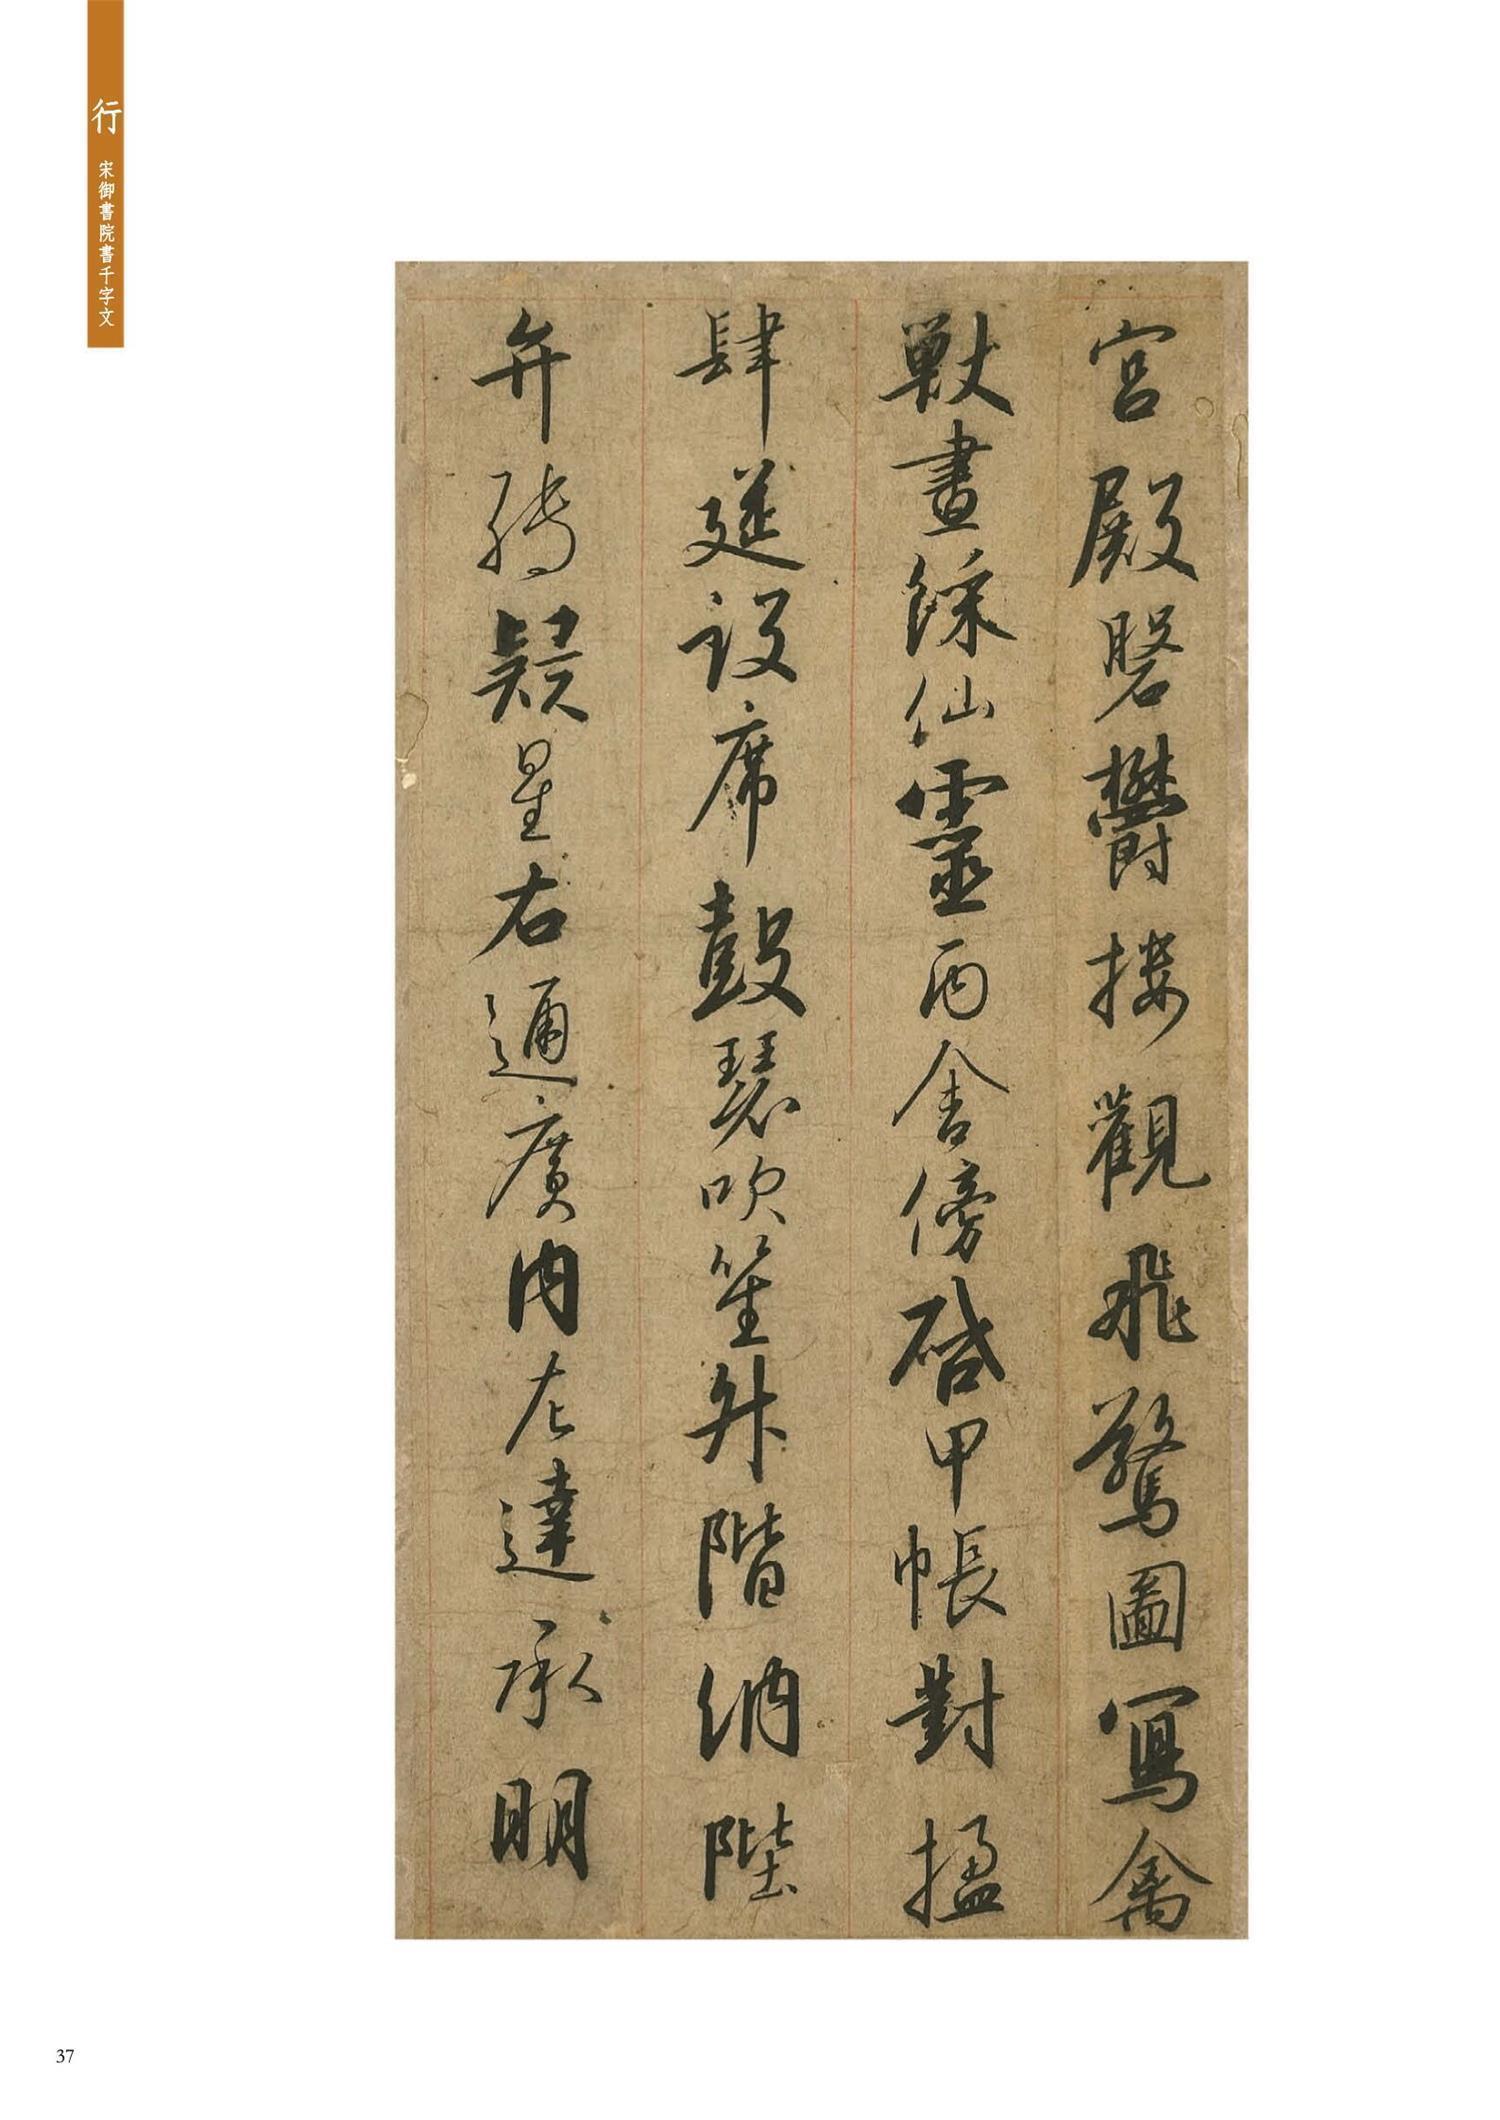 行
宋御書院書千字文
宮殿磐鬱樓觀飛驚圖寫禽
獸畫綵仙靈丙舍傍啓甲帳對楹
肆筵設席鼓瑟吹笙升階納陛
弁轉疑星右通廣內左達承明
37